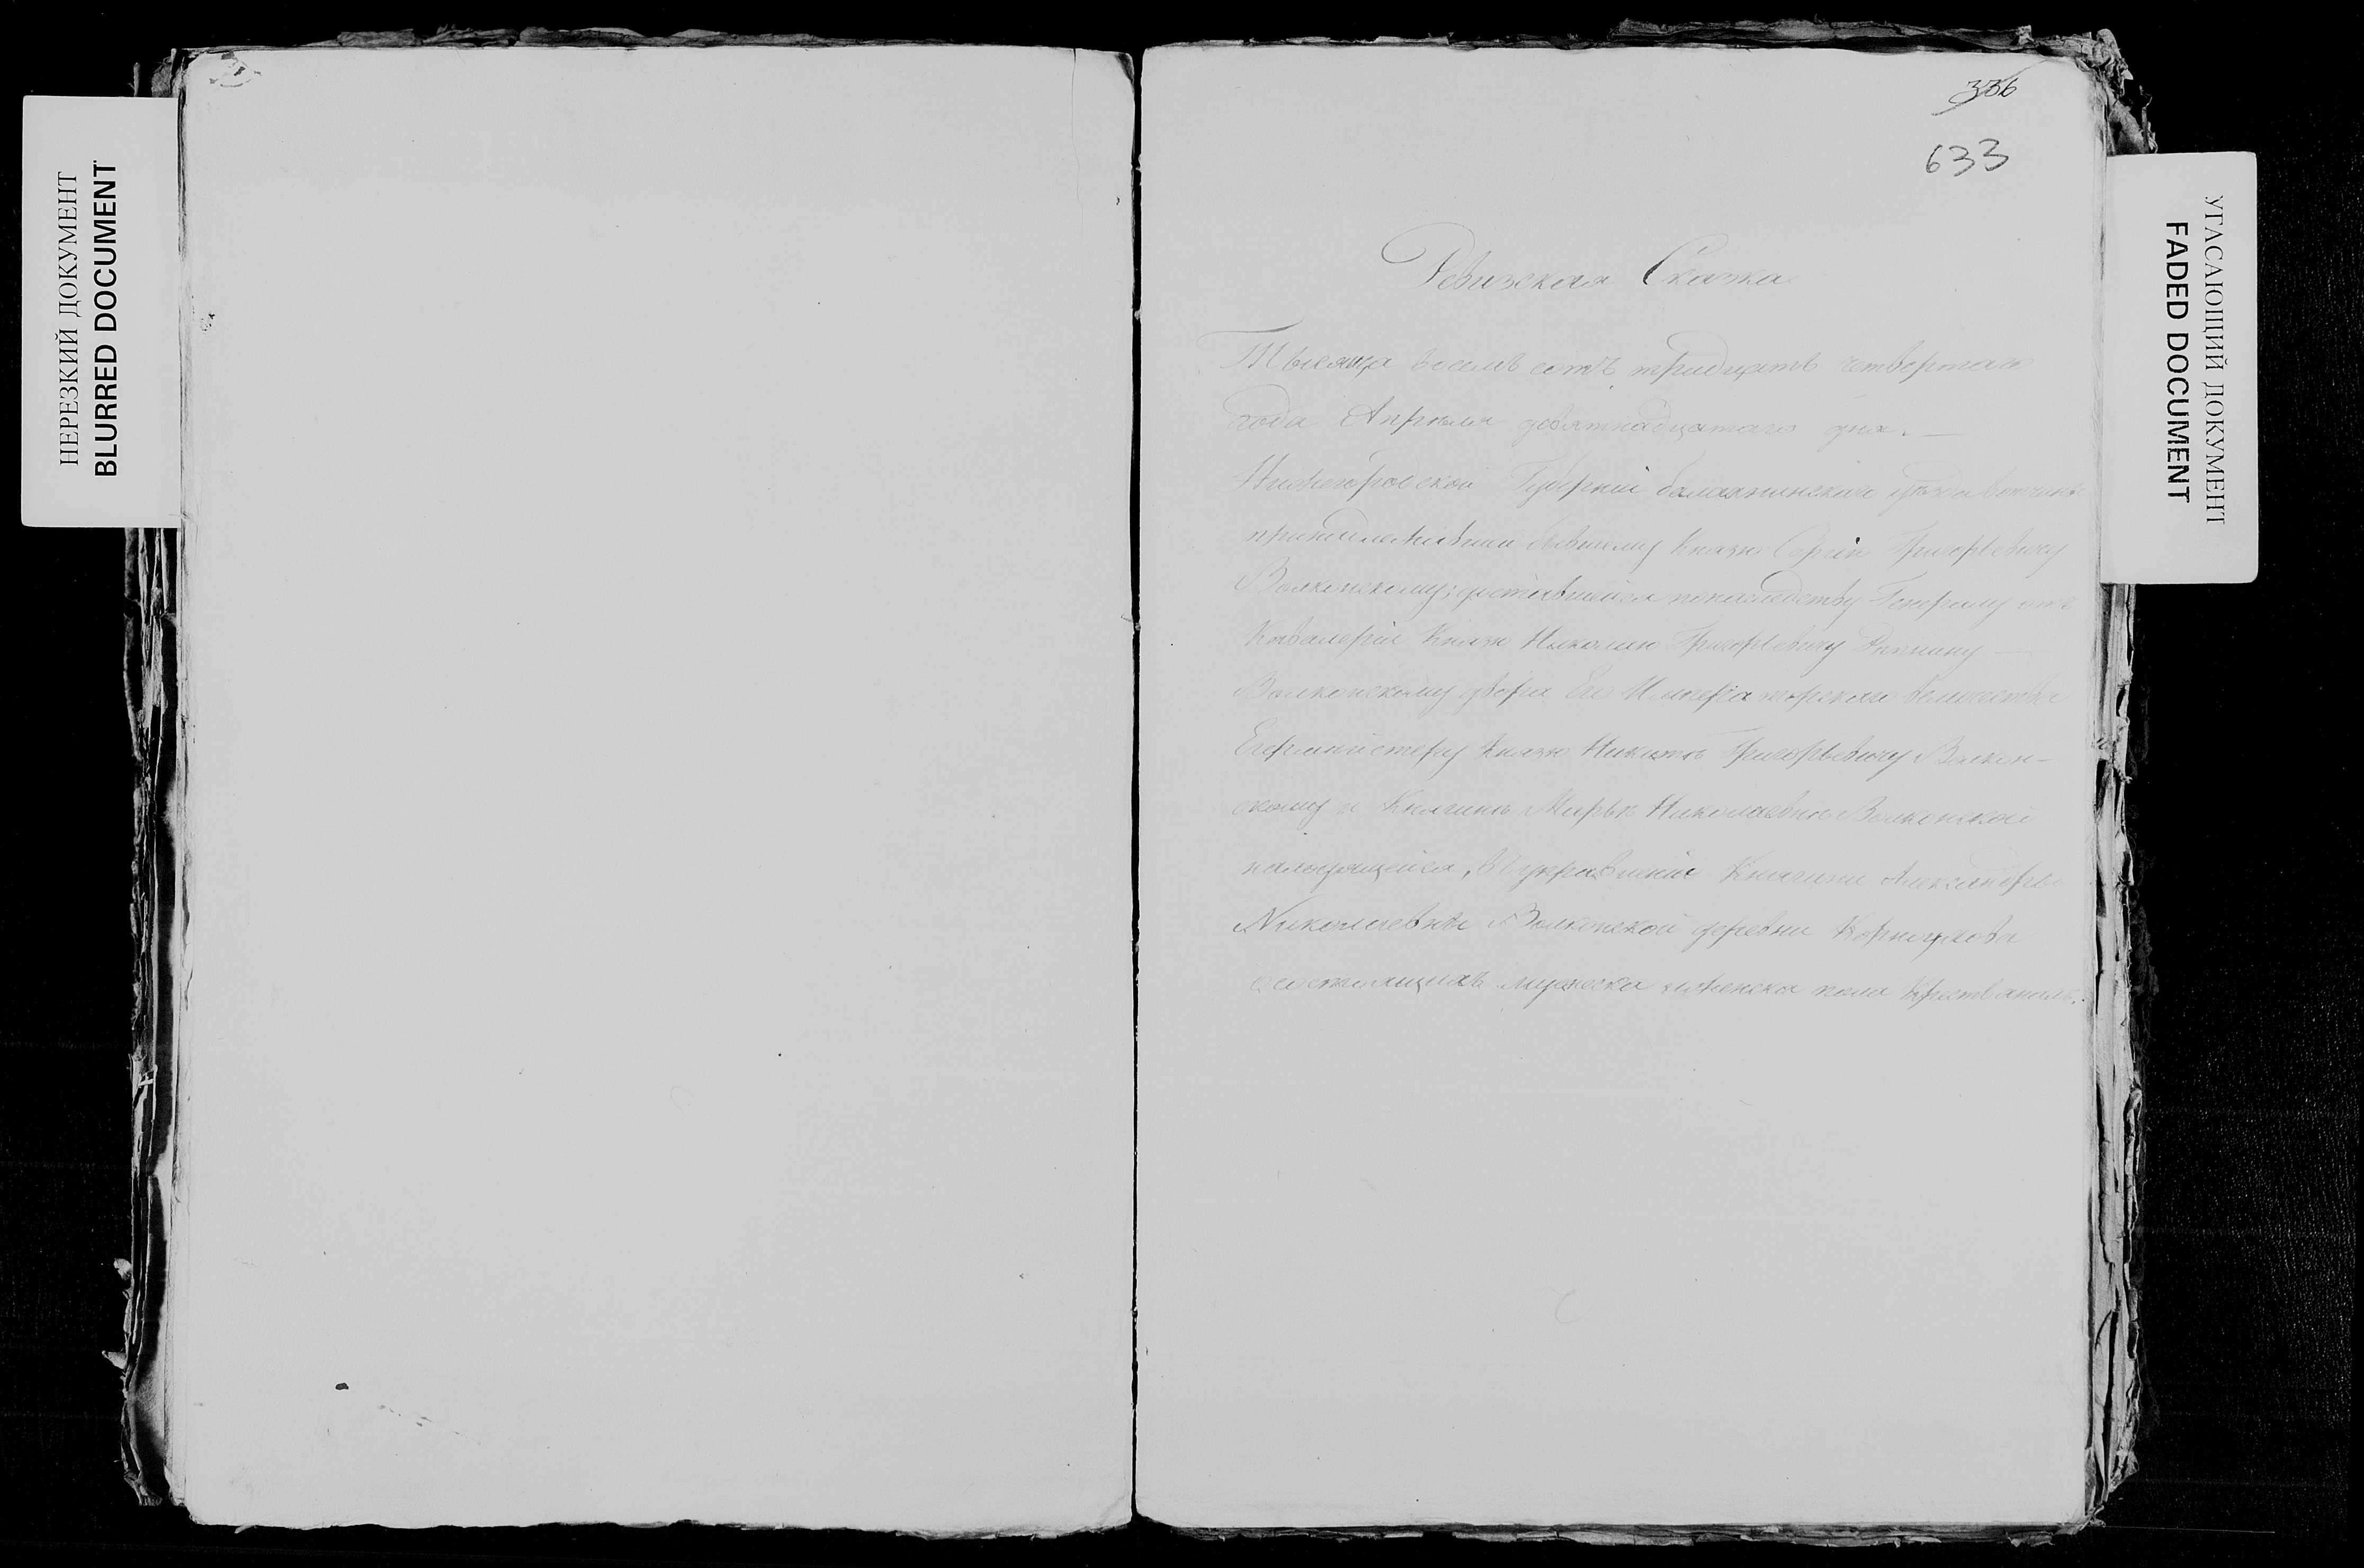 НЕРЕЗКИЙ ДОКУМЕНТ
BLURRED DOCUMENT
336
633
УГАСАЮЩИЙ ДОКУМЕНТ
FADED DOCUMENT
Ревизская Сказка
Тысяща восемь сотъ тридцать четвертаго
года Апреля девятнадцатаго дня. —
Нижегородской Губерніи балахнинской
принадлежавшей бывшему Князю Сергію Григорьевичу
Волконскому; доставшейся понаследству Генералу отъ
Кавалеріи Князю Николаю Григорьевичу Репнину —
Волконскому двора Его Императорскаго величества
Егермейстеру Князю Никитѣ Григорьевичу Волкон-
скому и Княгинѣ Марьѣ Николаевнѣ Волконской
находящейся, въ управленіи Княгини Александры
Николаевны Волконской деревни
о состоящихъ мужеска и женска пола Крестьянахъ.